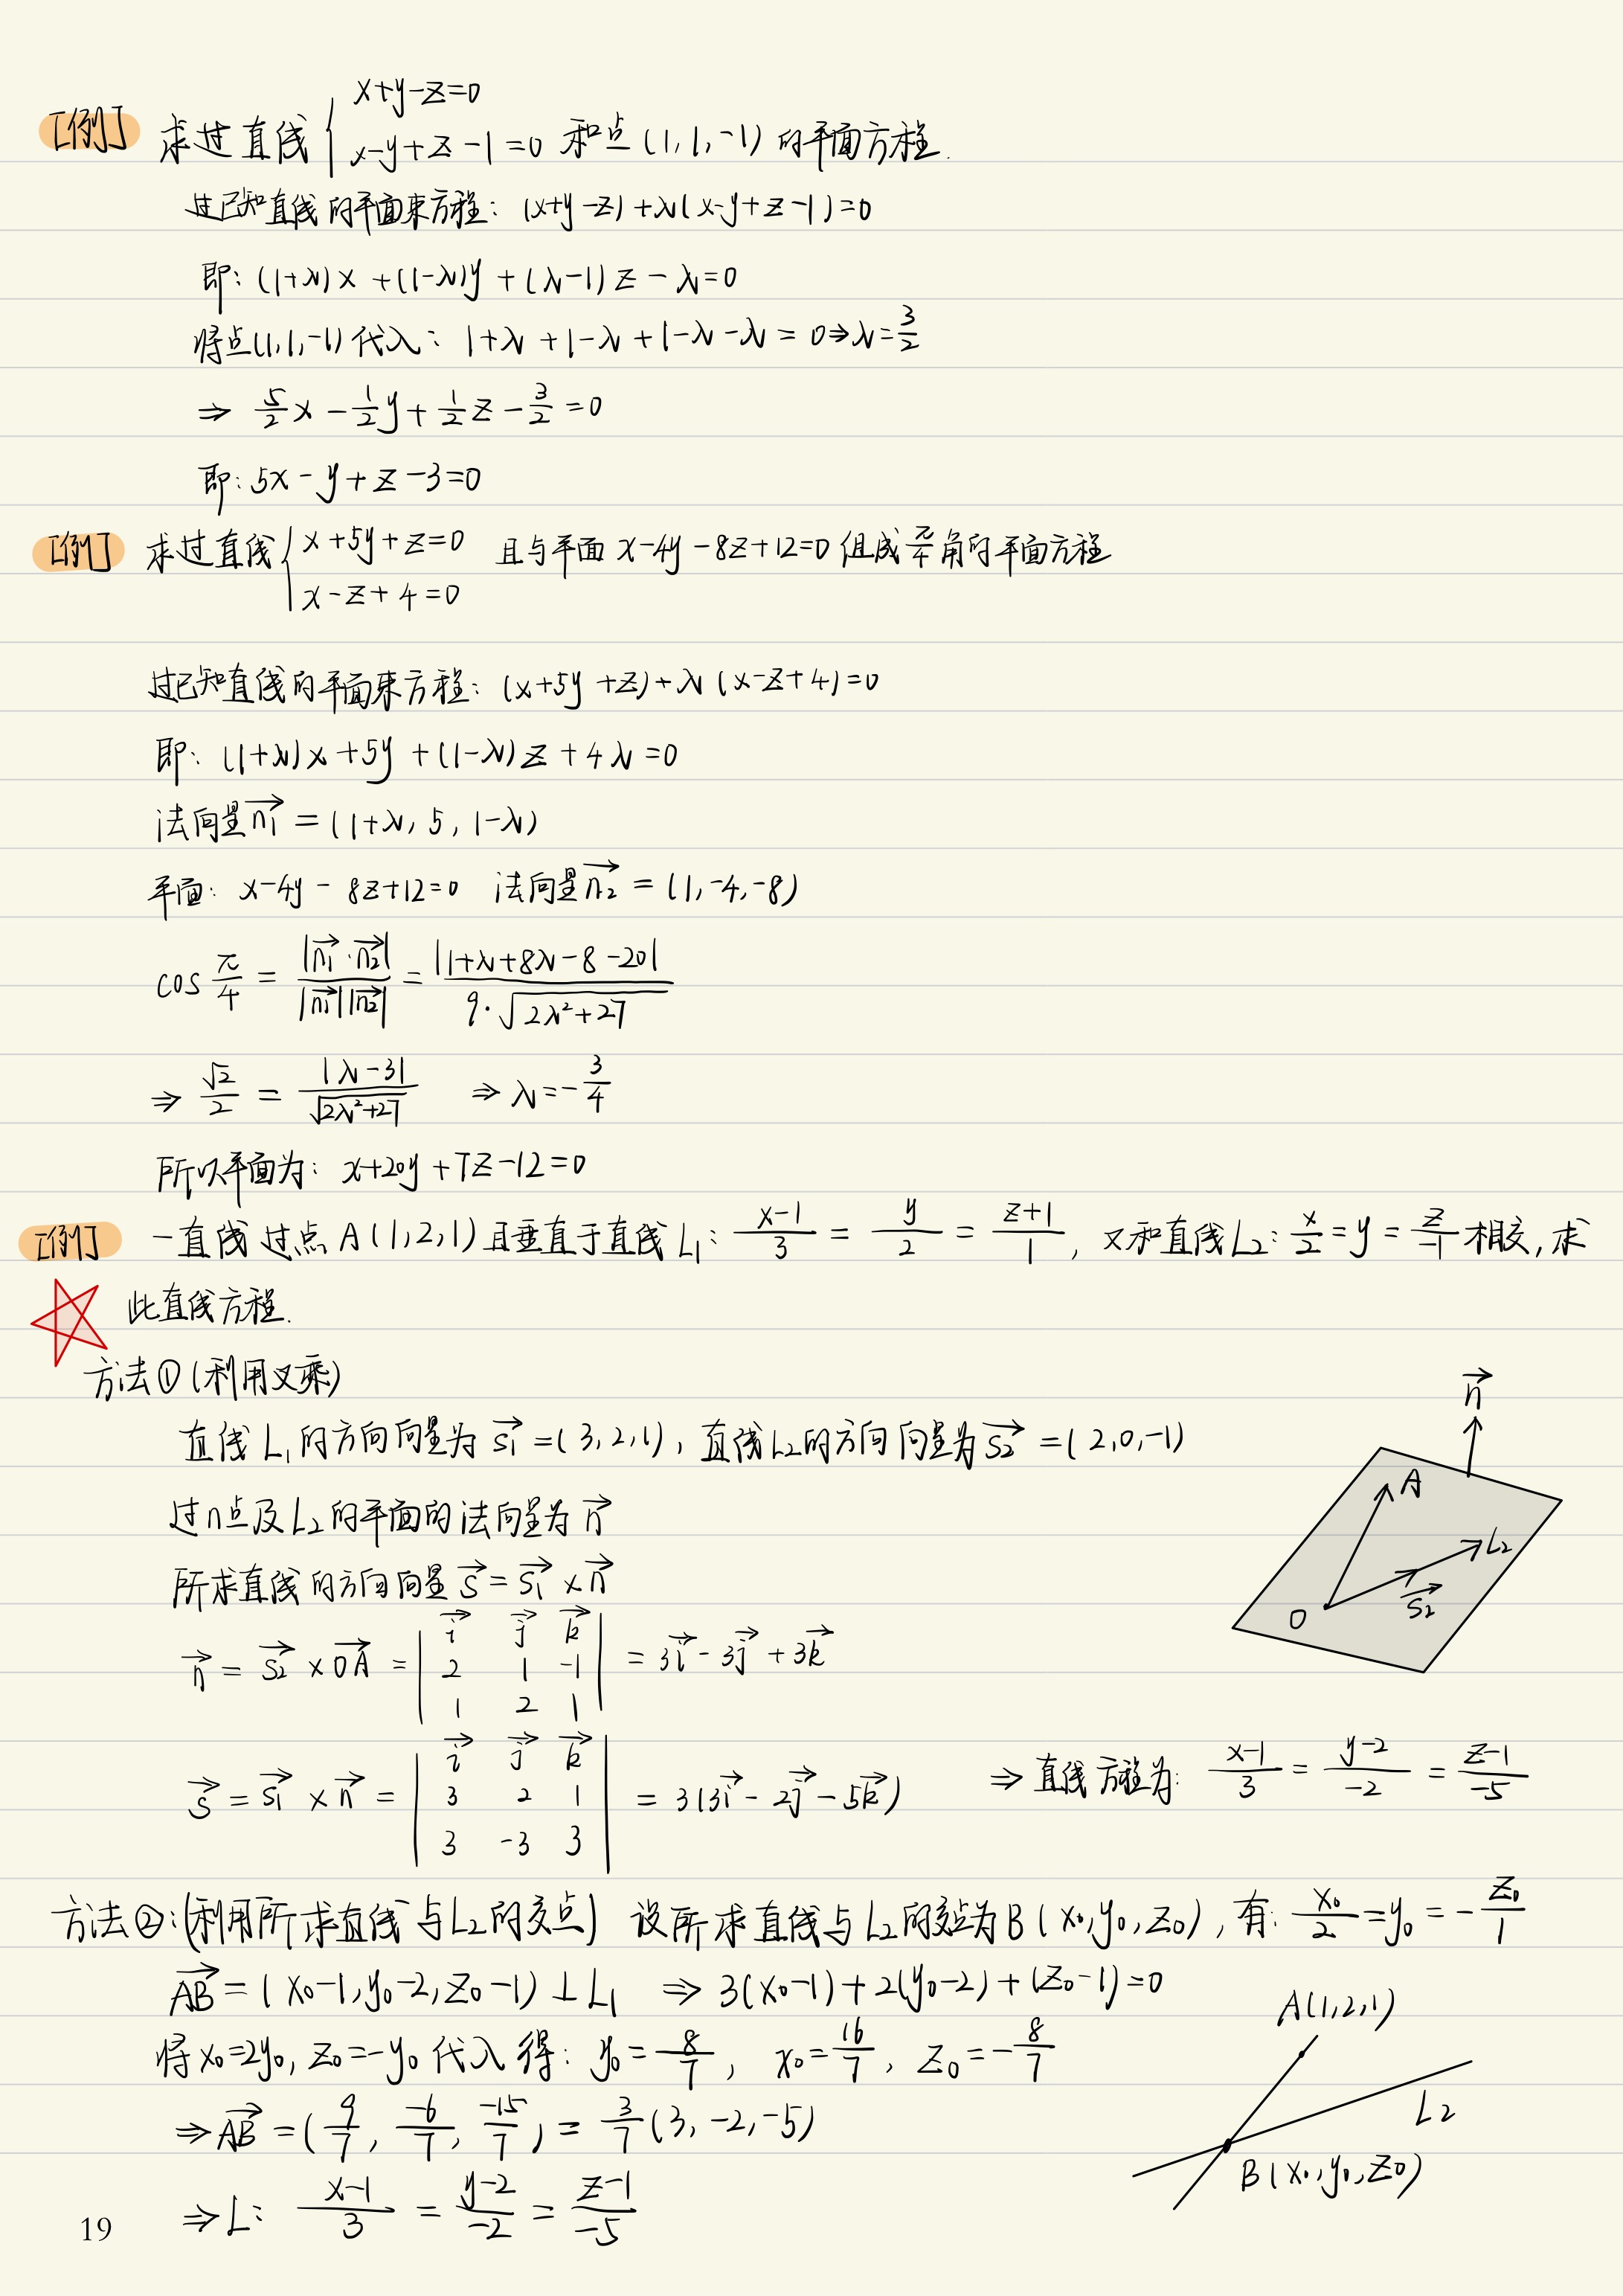 [例] 求过直线 { x+y-z=0
x-y+z-1=0 和点 (1,1,-1) 的平面方程.
过已知直线的平面束方程: (x+y-z)+λ(x-y+z-1)=0
即: (1+λ)x+(1-λ)y+(λ-1)z-λ=0
将点(1,1,-1)代入: 1+λ+1-λ+1-λ-λ=0⇒λ=3/2
⇒ 5/2x-1/2y+1/2z-3/2=0
即: 5x-y+z-3=0
[例] 求过直线 { x+5y+z=0 且与平面 x-4y-8z+12=0 组成 π/4 角的平面方程
x-z+4=0
过已知直线的平面束方程: (x+5y+z)+λ(x-z+4)=0
即: (1+λ)x+5y+(1-λ)z+4λ=0
法向量n₁→=(1+λ, 5, 1-λ)
平面: x-4y-8z+12=0 法向量n₂→=(1,-4,-8)
cos π/4 = |n₁→·n₂→|/|n₁→||n₂→| = |1+λ+8λ-8-20|/9·√(2λ²+27)
⇒ √2/2 = |λ-3|/√(2λ²+27) ⇒ λ=-3/4
所以平面为: x+20y+7z-12=0
[例] 一直线过点A(1,2,1)且垂直于直线L₁: (x-1)/3 = y/2 = (z+1)/1, 又和直线L₂: x/2=y=z/-1 相交, 求
此直线方程.
方法①(利用叉乘)
直线L₁的方向向量为 s₁→=(3,2,1), 直线L₂的方向向量为 s₂→=(2,0,-1)
过n点及L₂的平面的法向量为 n→
所求直线的方向向量 s→=s₁→×n→
n→=s₂→×OA→= | i→ j→ k→ | = 3i→-3j→+3k→
2 1 -1
1 2 1
s→=s₁→×n→= | i→ j→ k→ | = 3(3i→-2j→-5k→) ⇒直线方程为: (x-1)/3 = (y-2)/-2 = (z-1)/-5
3 2 1
3 -3 3
n→
A
L₂
s₂→
O
方法②:(利用所求直线与L₂的交点) 设所求直线与L₂的交点为B(x₀,y₀,z₀), 有: x₀/2=y₀=-z₀/1
AB→=(x₀-1,y₀-2,z₀-1)⊥L₁ ⇒ 3(x₀-1)+2(y₀-2)+(z₀-1)=0
将x₀=2y₀, z₀=-y₀代入得: y₀=8/7, x₀=16/7, z₀=-8/7
⇒AB→=(9/7, -6/7, -15/7)=3/7(3,-2,-5)
⇒L: (x-1)/3 = (y-2)/-2 = (z-1)/-5
A(1,2,1)
L₂
B(x₀,y₀,z₀)
19